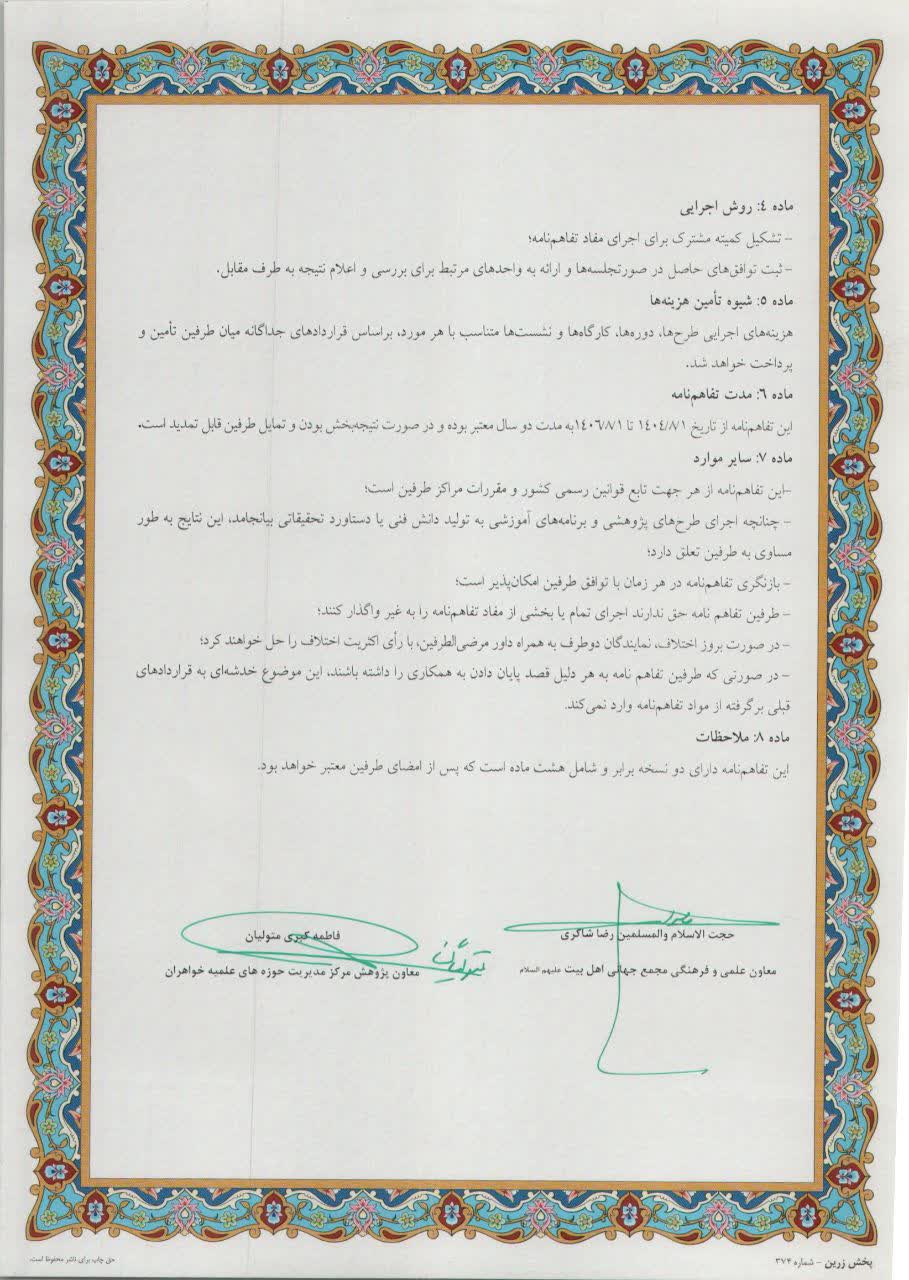 ماده ٤: روش اجرایی
- تشکیل کمیته مشترک برای اجرای مفاد تفاهم‌نامه؛
- ثبت توافق‌های حاصل در صورتجلسه‌ها و ارائه به واحدهای مرتبط برای بررسی و اعلام نتیجه به طرف مقابل.
ماده ٥: شیوه تأمین هزینه‌ها
هزینه‌های اجرایی طرح‌ها، دوره‌ها، کارگاه‌ها و نشست‌ها متناسب با هر مورد، براساس قراردادهای جداگانه میان طرفین تأمین و
پرداخت خواهد شد.
ماده ٦: مدت تفاهم‌نامه
این تفاهم‌نامه از تاریخ ١٤٠٤/٨/١ تا ١٤٠٦/٨/١به مدت دو سال معتبر بوده و در صورت نتیجه‌بخش بودن و تمایل طرفین قابل تمدید است.
ماده ٧: سایر موارد
-این تفاهم‌نامه از هر جهت تابع قوانین رسمی کشور و مقررات مراکز طرفین است؛
- چنانچه اجرای طرح‌های پژوهشی و برنامه‌های آموزشی به تولید دانش فنی یا دستاورد تحقیقاتی بیانجامد، این نتایج به طور
مساوی به طرفین تعلق دارد؛
- بازنگری تفاهم‌نامه در هر زمان با توافق طرفین امکان‌پذیر است؛
- طرفین تفاهم نامه حق ندارند اجرای تمام یا بخشی از مفاد تفاهم‌نامه را به غیر واگذار کنند؛
- در صورت بروز اختلاف، نمایندگان دوطرف به همراه داور مرضی‌الطرفین، با رأی اکثریت اختلاف را حل خواهند کرد؛
- در صورتی که طرفین تفاهم نامه به هر دلیل قصد پایان دادن به همکاری را داشته باشند، این موضوع خدشه‌ای به قراردادهای
قبلی برگرفته از مواد تفاهم‌نامه وارد نمی‌کند.
ماده ٨: ملاحظات
این تفاهم‌نامه دارای دو نسخه برابر و شامل هشت ماده است که پس از امضای طرفین معتبر خواهد بود.
حجت الاسلام والمسلمین رضا شاکری
معاون علمی و فرهنگی مجمع جهانی اهل بیت علیهم السلام
فاطمه کبری متولیان
معاون پژوهش مرکز مدیریت حوزه های علمیه خواهران
پخش زرین - شماره ۳۷۴
حق چاپ برای ناشر محفوظ است.